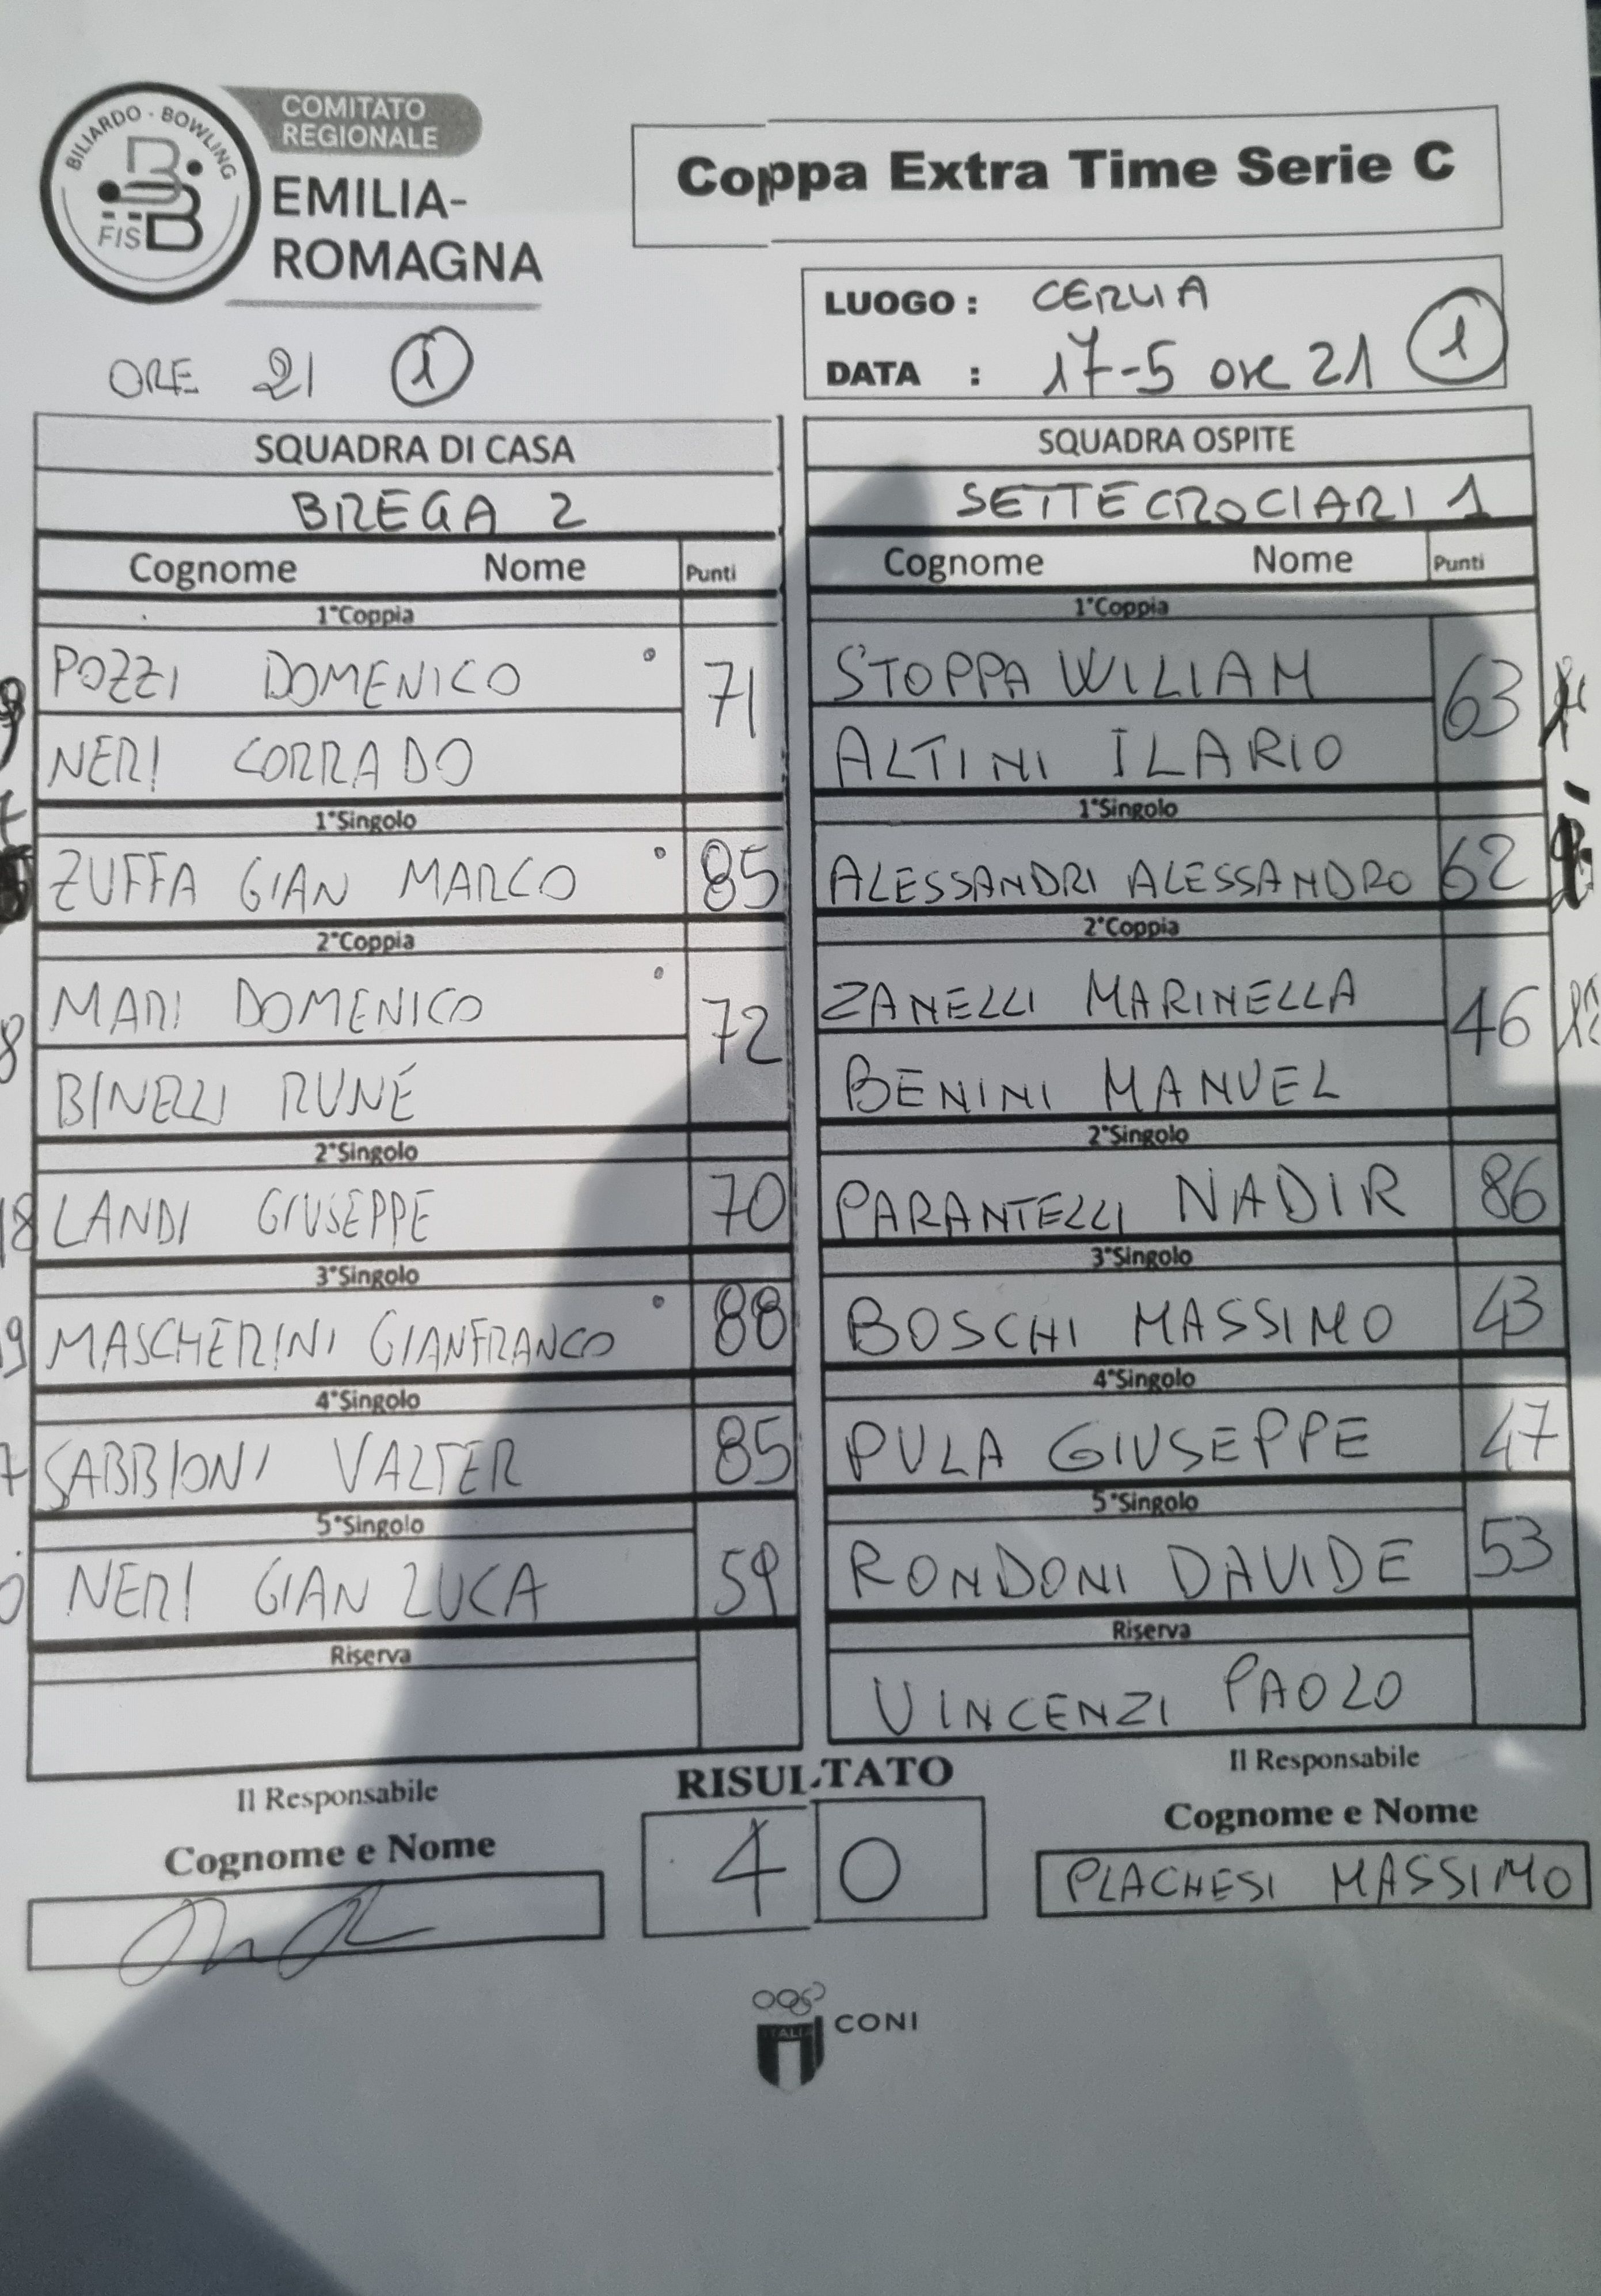 BILIARDO - BOWLING
FISBB
COMITATO
REGIONALE
EMILIA-
ROMAGNA
Coppa Extra Time Serie C
LUOGO : CERVIA
DATA : 17-5 ore 21 1
ORE 21 1
SQUADRA DI CASA
BREGA 2
Cognome Nome Punti
1°Coppia
POZZI DOMENICO 71
NERI CORRADO
1°Singolo
ZUFFA GIAN MARCO 85
2°Coppia
MARI DOMENICO 72
BINELLI RUNÉ
2°Singolo
18 LANDI GIUSEPPE 70
3°Singolo
MASCHERINI GIANFRANCO 88
4°Singolo
SABBIONI VALTER 85
5°Singolo
NERI GIANLUCA 59
Riserva
SQUADRA OSPITE
SETTECROCIARI 1
Cognome Nome Punti
1°Coppia
STOPPA WILIAM 63
ALTINI ILARIO
1°Singolo
ALESSANDRI ALESSANDRO 62
2°Coppia
ZANELLI MARINELLA 46
BENINI MANUEL
2°Singolo
PARANTELLI NADIR 86
3°Singolo
BOSCHI MASSIMO 43
4°Singolo
PULA GIUSEPPE 47
5°Singolo
RONDONI DAVIDE 53
Riserva
VINCENZI PAOLO
Il Responsabile
Cognome e Nome
RISULTATO
4 0
Il Responsabile
Cognome e Nome
PLACHESI MASSIMO
ITALIA
CONI